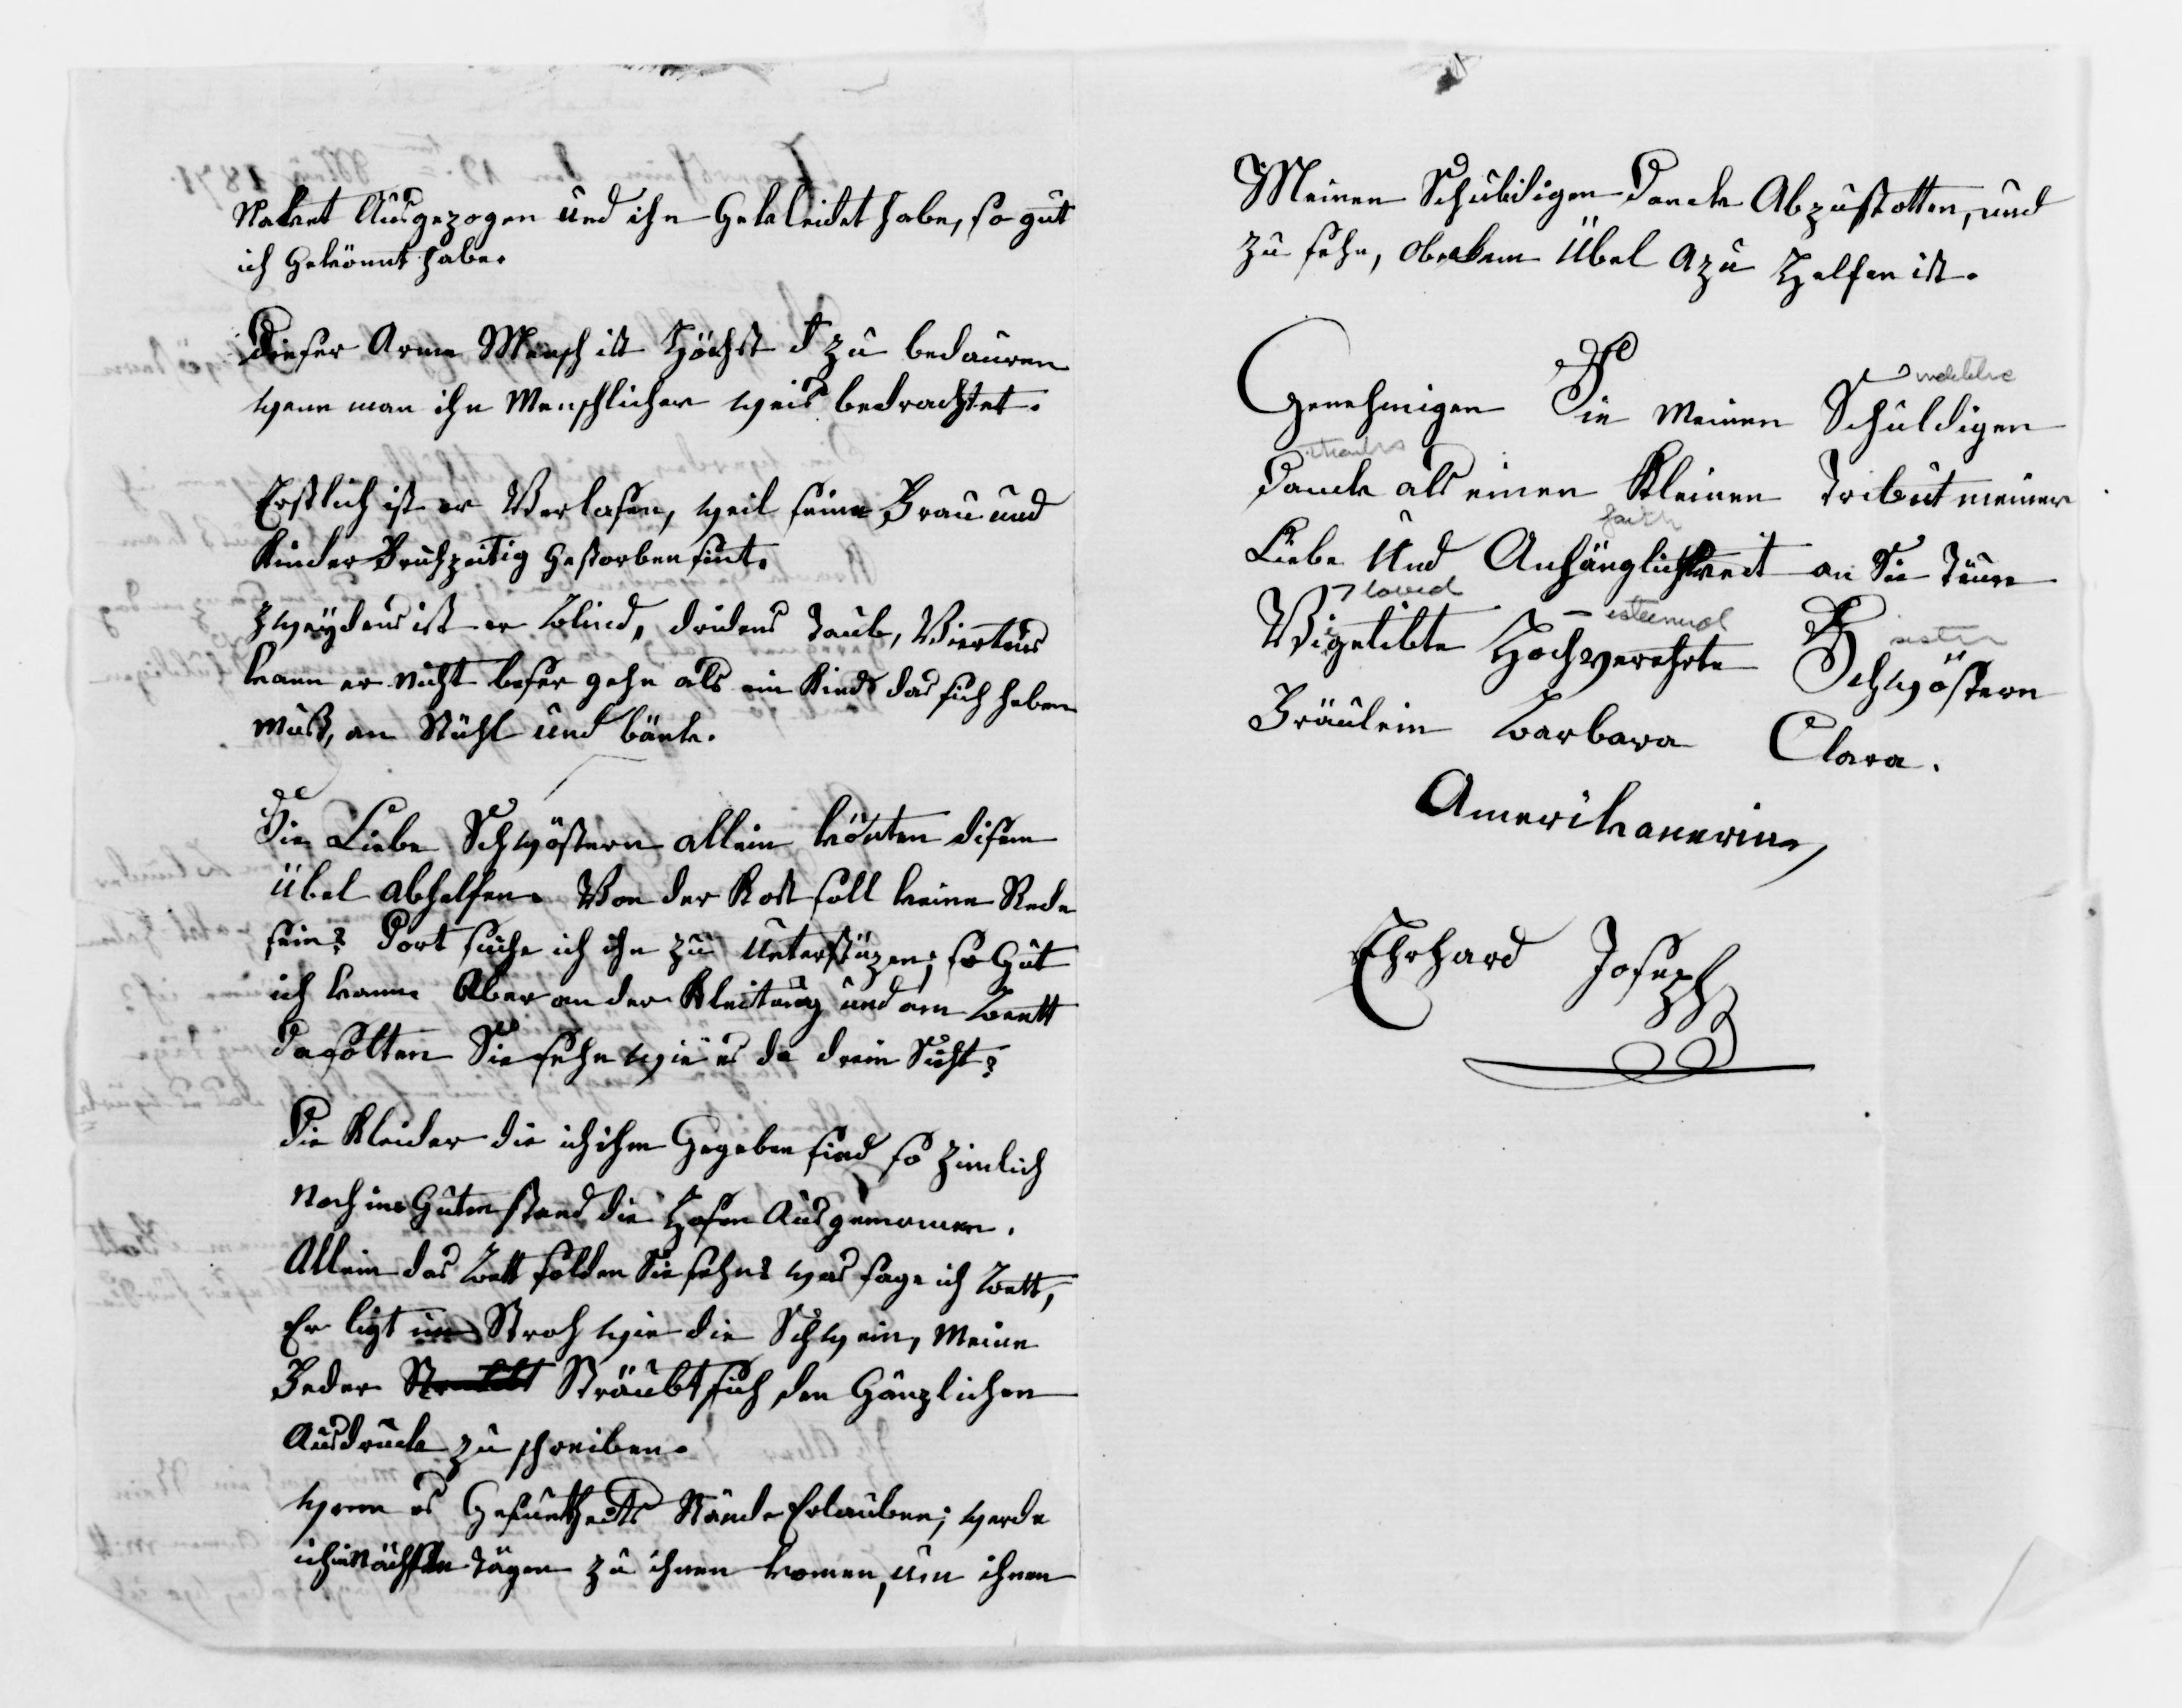 Nakent Ausgezogen und ihn Gekleidet habe, so gut
ich Gekönnt habe.
Dieser Arme Mensch ist Höchst zu bedauren
wenn man ihn Menschlicher weis bedrachtet.
Erstlich ist er Verlasen, weil seine Frau und
Kinder Fruhzeitig Gestorben sint.
Zweydens ist er Blind, dridens Taub, Viertens
kann er nicht beser gehn als ein Kind das sich heben
muß, an Stühl und bänk.
Die Liebe Schwöstern allein könten disem
Übel abhelfen. Von der Kost soll keine Rede
sein? Dort suche ich ihn zu Unterstüzen; so Gut
ich kann. Aber an der Kleitung und am Bett
da solten Sie sehn wie es da drein Sieht?
Die Kleider die ich ihm Gegeben sind so zimlich
noch im Guten stand die Hosen Ausgenomen.
Allein das Bett solden Sie sehn? was sage ich Bett,
Er ligt im Stroh wie die Schwein, Meine
Feder Sträubt sich den Gänzlichen
Ausdruck zu schreiben.
wenn es Gesuntheits Stände Erlauben; werde
ich in Nächsten Tägen zu ihnen komen, um ihnen
Meinen Schuldigen Danck Abzustatten, und
zu sehn, ob dem Übel zu Helfen ist.
Genehmigen Sie Meinen Schuldigen
thanks
Danck als einen Kleinen Tribut meiner
faith
Liebe Und Anhänglichkeit an Sie Teure
loved esteemed sister
Vigelibte Hochverehrte Schwöstern
Fräulein Barbara Clara.
Amerikanerin,
Ehrhard Joseph